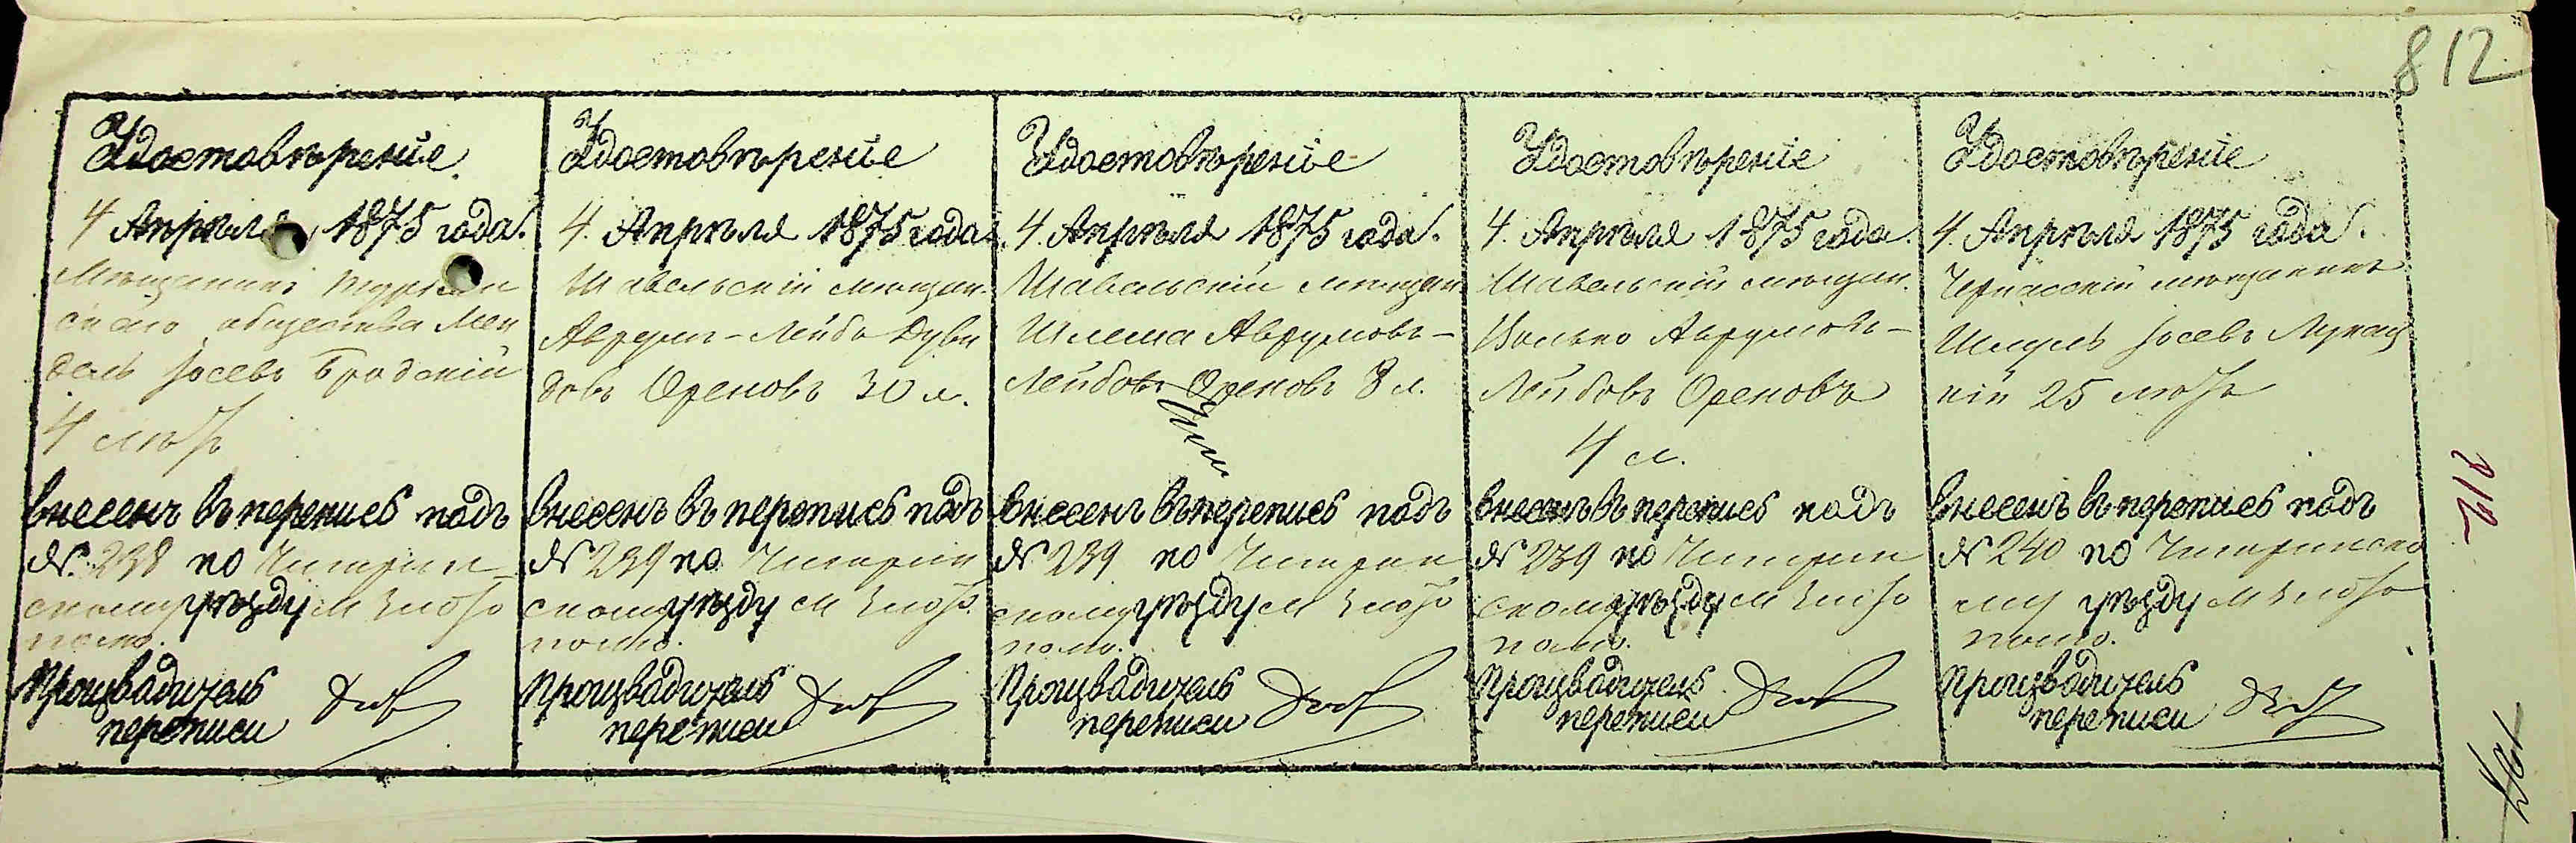 812
Удостовѣреніе
4 Апрѣля 1875 года.
Мѣщанинъ
скаго общества Мен
дель Іосевъ Бродскій
4 лѣтъ
внесенъ въ перепись подъ
№ 238 по Чигирин
скому уѣзду м Злато
полю.
Производитель
переписи
Удостовѣреніе
4. Апрѣля 1875 года.
Шавельскій мѣщан.
Аврумъ-Лейба Дуви
довъ Ореновъ 30 л.
внесенъ въ перепись подъ
№ 239 по Чигирин
скому уѣзду м Злато
полю.
Производитель
переписи
Удостовѣреніе
4. Апрѣля 1875 года.
Шавельскій мѣщан
Шлема Аврумовъ-
Лейбовъ Ореновъ 8 л.
внесенъ въ перепись подъ
№ 239 по Чигирин
скому уѣзду м Злато
полю.
Производитель
переписи
Удостовѣреніе
4. Апрѣля 1875 года.
Шавельскій мѣщан.
Аврумовъ-
Лейбовъ Ореновъ
4 л.
внесенъ въ перепись подъ
№ 239 по Чигирин
скому уѣзду м Злато
полю.
Производитель
переписи
Удостовѣреніе
4. Апрѣля 1875 года.
Черкасскій мѣщанинъ
Шмуль Іосевъ Лукац
кій 25 лѣтъ
внесенъ въ перепись подъ
№ 240 по Чигиринско
му уѣзду м Злато
полю.
Производитель
переписи
712